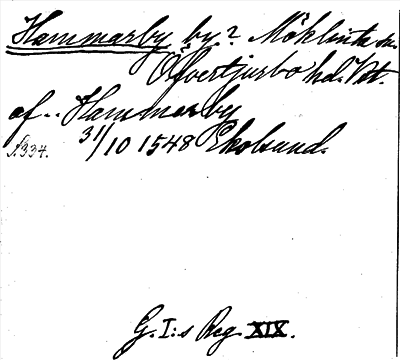 Hammarby by? Möklinta sn.
Öfvertjurbo hd. Vtm.
af.. Hammarby
s.334. 31/10 1548 Ekolsund.
G. I:s Reg. XIX.